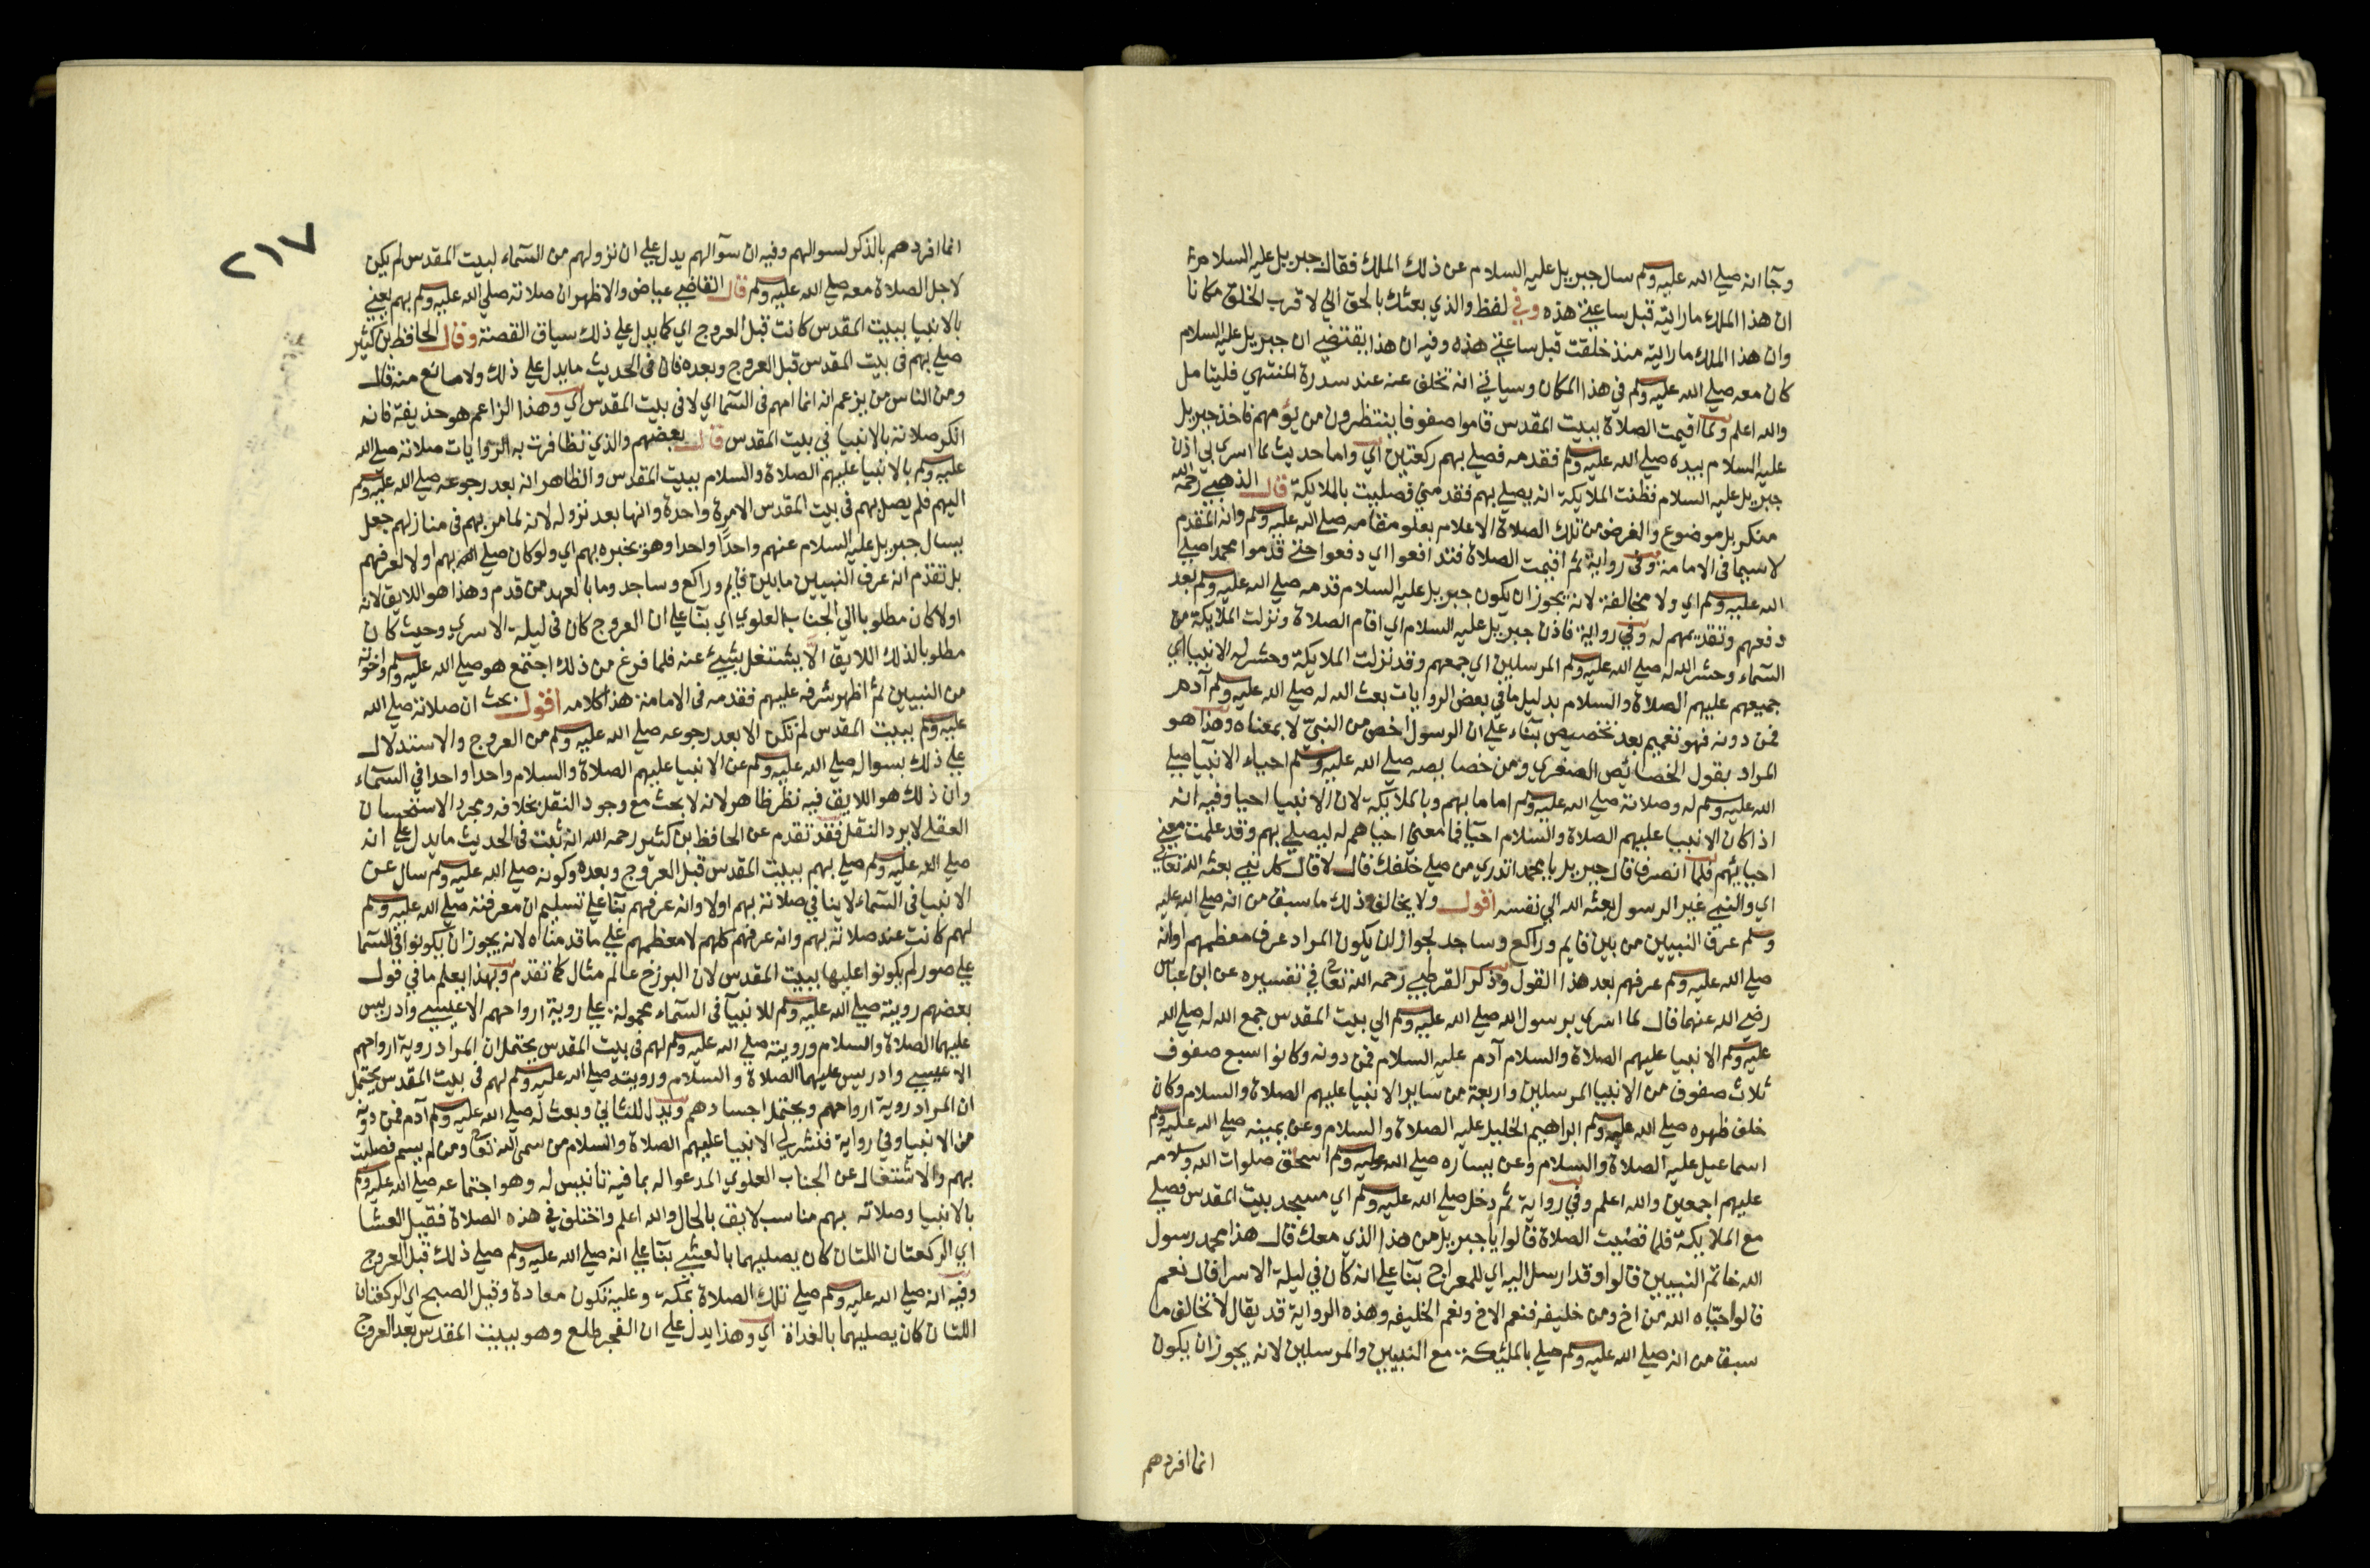 وجا انه صلي الله عليه وسلم سال جبريل عليه السلام عن ذلك الملك فقال جبريل عليه السلام
ان هذا الملك مارايته قبل ساعتي هذه وفي لفظ والذي بعثك بالحق اني لاقرب الخلق مكانا
وان هذا الملك مارايته منذ خلقت قبل ساعتي هذه وفيه ان هذا يقتضي ان جبريل عليه السلام
كان معه صلي الله عليه وسلم في هذا المكان وسياتي انه تخلف عنه عند سدرة المنتهي فليتامل
والله اعلم ولما اقيمت الصلاة ببيت المقدس قاموا صفوفا ينتظرون من يؤمهم فاخذ جبريل
عليه السلام بيده صلي الله عليه وسلم فقدمه فصلي بهم ركعتين اي واما حديث لما اسري بي اذن
جبريل عليه السلام فظنت الملايكة انه يصلي بهم فقدمني فصليت بالملايكة قال الذهبي رحمه الله
منكر بل موضوع والغرض من تلك الصلاة الاعلام بعلو مقامه صلي الله عليه وسلم وانه المقدم
لاسيما في الامامة وفي رواية ثم اقيمت الصلاة فتدافعوا اي دفعوا حتي قدموا محمدا صلي
الله عليه وسلم اي ولا مخالفة لانه يجوز ان يكون جبريل عليه السلام قدمه صلي الله عليه وسلم بعد
دفعهم وتقديمهم له وفي رواية فاذن جبريل عليه السلام اي اقام الصلاة ونزلت الملايكة من
السماء وحشر الله له صلي الله عليه وسلم المرسلين اي جميعهم وقد نزلت الملايكة وحشر له الانبيا اي
جميعهم عليهم الصلاة والسلام بدليل ما في بعض الروايات بعث الله له صلي الله عليه وسلم آدم
فمن دونه فهو تعميم بعد تخصيص بناء علي ان الرسول اخص من النبي لا بمعناه وهذا هو
المراد بقول الخصائص الصغري ومن خصايصه صلي الله عليه وسلم احياء الانبيا صلي
الله عليه وسلم له وصلاته صلي الله عليه وسلم اماما بهم وبالملايكة لان الانبيا احيا وفيه انه
اذا كان الانبيا عليهم الصلاة والسلام احيا فما معني احياهم له ليصلي بهم وقد علمت معني
احيايهم فلما انصرف قال جبريل يا محمد اتدري من صلي خلفك قال لا قال كل نبي بعثه الله تعالي
اي والنبي غير الرسول بعثه الله الي نفسه اقول ولا يخالف ذلك ما سبق من انه صلي الله عليه
وسلم عرف النبيين من بين قايم وراكع وساجد لجواز ان يكون المراد عرف معظمهم او انه
صلي الله عليه وسلم عرفهم بعد هذا القول وذكر القرطبي رحمه الله تعالي في تفسيره عن ابن عباس
رضي الله عنهما قال لما اسري برسول الله صلي الله عليه وسلم الي بيت المقدس جمع الله له صلي الله
عليه وسلم الانبيا عليهم الصلاة والسلام آدم عليه السلام فمن دونه وكانوا سبع صفوف
ثلاث صفوف من الانبيا المرسلين واربعة من ساير الانبيا عليهم الصلاة والسلام وكان
خلف ظهره صلي الله عليه وسلم ابراهيم الخليل عليه الصلاة والسلام وعن يمينه صلي الله عليه وسلم
اسماعيل عليه الصلاة والسلام وعن يساره صلي الله عليه وسلم اسحق صلوات الله وسلامه
عليهم اجمعين والله اعلم وفي رواية ثم دخل صلي الله عليه وسلم اي مسجد بيت المقدس فصلي
مع الملايكة فلما قضيت الصلاة قالوا يا جبريل من هذا الذي معك قال هذا محمد رسول
الله خاتم النبيين قالوا وقد ارسل اليه اي للمعراج بنا علي انه كان في ليلة الاسرا قال نعم
قالوا حياه الله من اخ ومن خليفه فنعم الاخ ونعم الخليفه وهذه الرواية قد يقال لا تخالف ما
سبق من انه صلي الله عليه وسلم صلي بالمليكة مع النبيين والمرسلين لانه يجوز ان يكون
انما افردهم
٢١٧
انما افردهم بالذكر لسوالهم وفيه ان سوآلهم يدل علي ان نزولهم من السماء لبيت المقدس لم يكن
لاجل الصلاة معه صلي الله عليه وسلم قال القاضي عياض والاظهر ان صلاته صلي الله عليه وسلم بهم يعني
بالانبيا ببيت المقدس كانت قبل العروج اي كما يدل علي ذلك سياق القصة وقال الحافظ بن كثير
صلي بهم في بيت المقدس قبل العروج وبعده فان في الحديث ما يدل علي ذلك ولا مانع منه قال
ومن الناس من يزعم انه انما امهم في السما اي لا في بيت المقدس اي وهذا الزاعم هو حذيفة فانه
انكر صلاته بالانبيا في بيت المقدس قال بعضهم والذي تظافرت به الروايات صلاته صلي الله
عليه وسلم بالانبيا عليهم الصلاة والسلام ببيت المقدس والظاهر انه بعد رجوعه صلي الله عليه وسلم
اليهم فلم يصل بهم في بيت المقدس الا مرة واحدة وانها بعد نزوله لانه لما مر بهم في منازلهم جعل
يسال جبريل عليه السلام عنهم واحدا واحدا وهو يخبره بهم اي ولو كان صلي بهم اولا لعرفهم
بل تقدم انه عرف النبيين ما بين قايم وراكع وساجد وما بالعهد من قدم وهذا هو اللايق لانه
اولا كان مطلوبا الي الجناب العلوي اي بنا علي ان العروج كان في ليلة الاسري وحيث كان
مطلوبا لذلك اللايق الا يشتغل بشيئ عنه فلما فرغ من ذلك اجتمع هو صلي الله عليه وسلم واخوته
من النبيين ثم اظهر شرفه عليهم فقدمه في الامامة هذا كلامه اقول بحث ان صلاته صلي الله
عليه وسلم ببيت المقدس لم تكن الا بعد رجوعه صلي الله عليه وسلم من العروج والاستدلال
علي ذلك بسواله صلي الله عليه وسلم عن الانبيا عليهم الصلاة والسلام واحدا واحدا في السماء
وان ذلك هو اللايق فيه نظر ظاهر لانه لا بحث مع وجود النقل بخلافه ومجرد الاستحسان
العقلي لا يرد النقل فقد تقدم عن الحافظ بن كثير رحمه الله انه ثبت في الحديث ما يدل علي انه
صلي الله عليه وسلم صلي بهم ببيت المقدس قبل العروج وبعده وكونه صلي الله عليه وسلم سال عن
الانبيا في السماء لا ينافي صلاته بهم اولا وانه عرفهم بنا علي تسليم ان معرفته صلي الله عليه وسلم
لهم كانت عند صلاته بهم وانه عرفهم كلهم لا معظمهم علي ما قدمناه لانه يجوز ان يكونوا في السما
علي صور لم يكونوا عليها ببيت المقدس لان البرزخ عالم مثال كما تقدم وبهذا يعلم ما في قول
بعضهم رويته صلي الله عليه وسلم للانبيآ في السماء محمولة علي روية ارواحهم الا عيسي وادريس
عليهما الصلاة والسلام ورويته صلي الله عليه وسلم لهم في بيت المقدس يحتمل ان المراد روية ارواحهم
الا عيسي وادريس عليهما الصلاة والسلام ورويته صلي الله عليه وسلم لهم في بيت المقدس يحتمل
ان المراد روية ارواحهم ويحتمل اجسادهم ويدل للثاني وبعث له صلي الله عليه وسلم آدم فمن دونه
من الانبيا وفي رواية فنشر لي الانبيا عليهم الصلاة والسلام من سمي الله تعالي ومن لم يسم فصليت
بهم والاشتغال عن الجناب العلوي المدعو اله بما فيه تانيس له وهو اجتماعه صلي الله عليه وسلم
بالانبيا وصلاته بهم مناسب لايق بالحال والله اعلم واختلف في هذه الصلاة فقيل العشا
اي الركعتان اللتان كان يصليهما بالعشي بنا علي انه صلي الله عليه وسلم صلي ذلك قبل العروج
وفيه انه صلي الله عليه وسلم صلي تلك الصلاة بمكة وعليه تكون معادة وقيل الصبح اي الركعتان
اللتان كان يصليهما بالغداة اي وهذا يدل علي ان الفجر طلع وهو ببيت المقدس بعد العروج